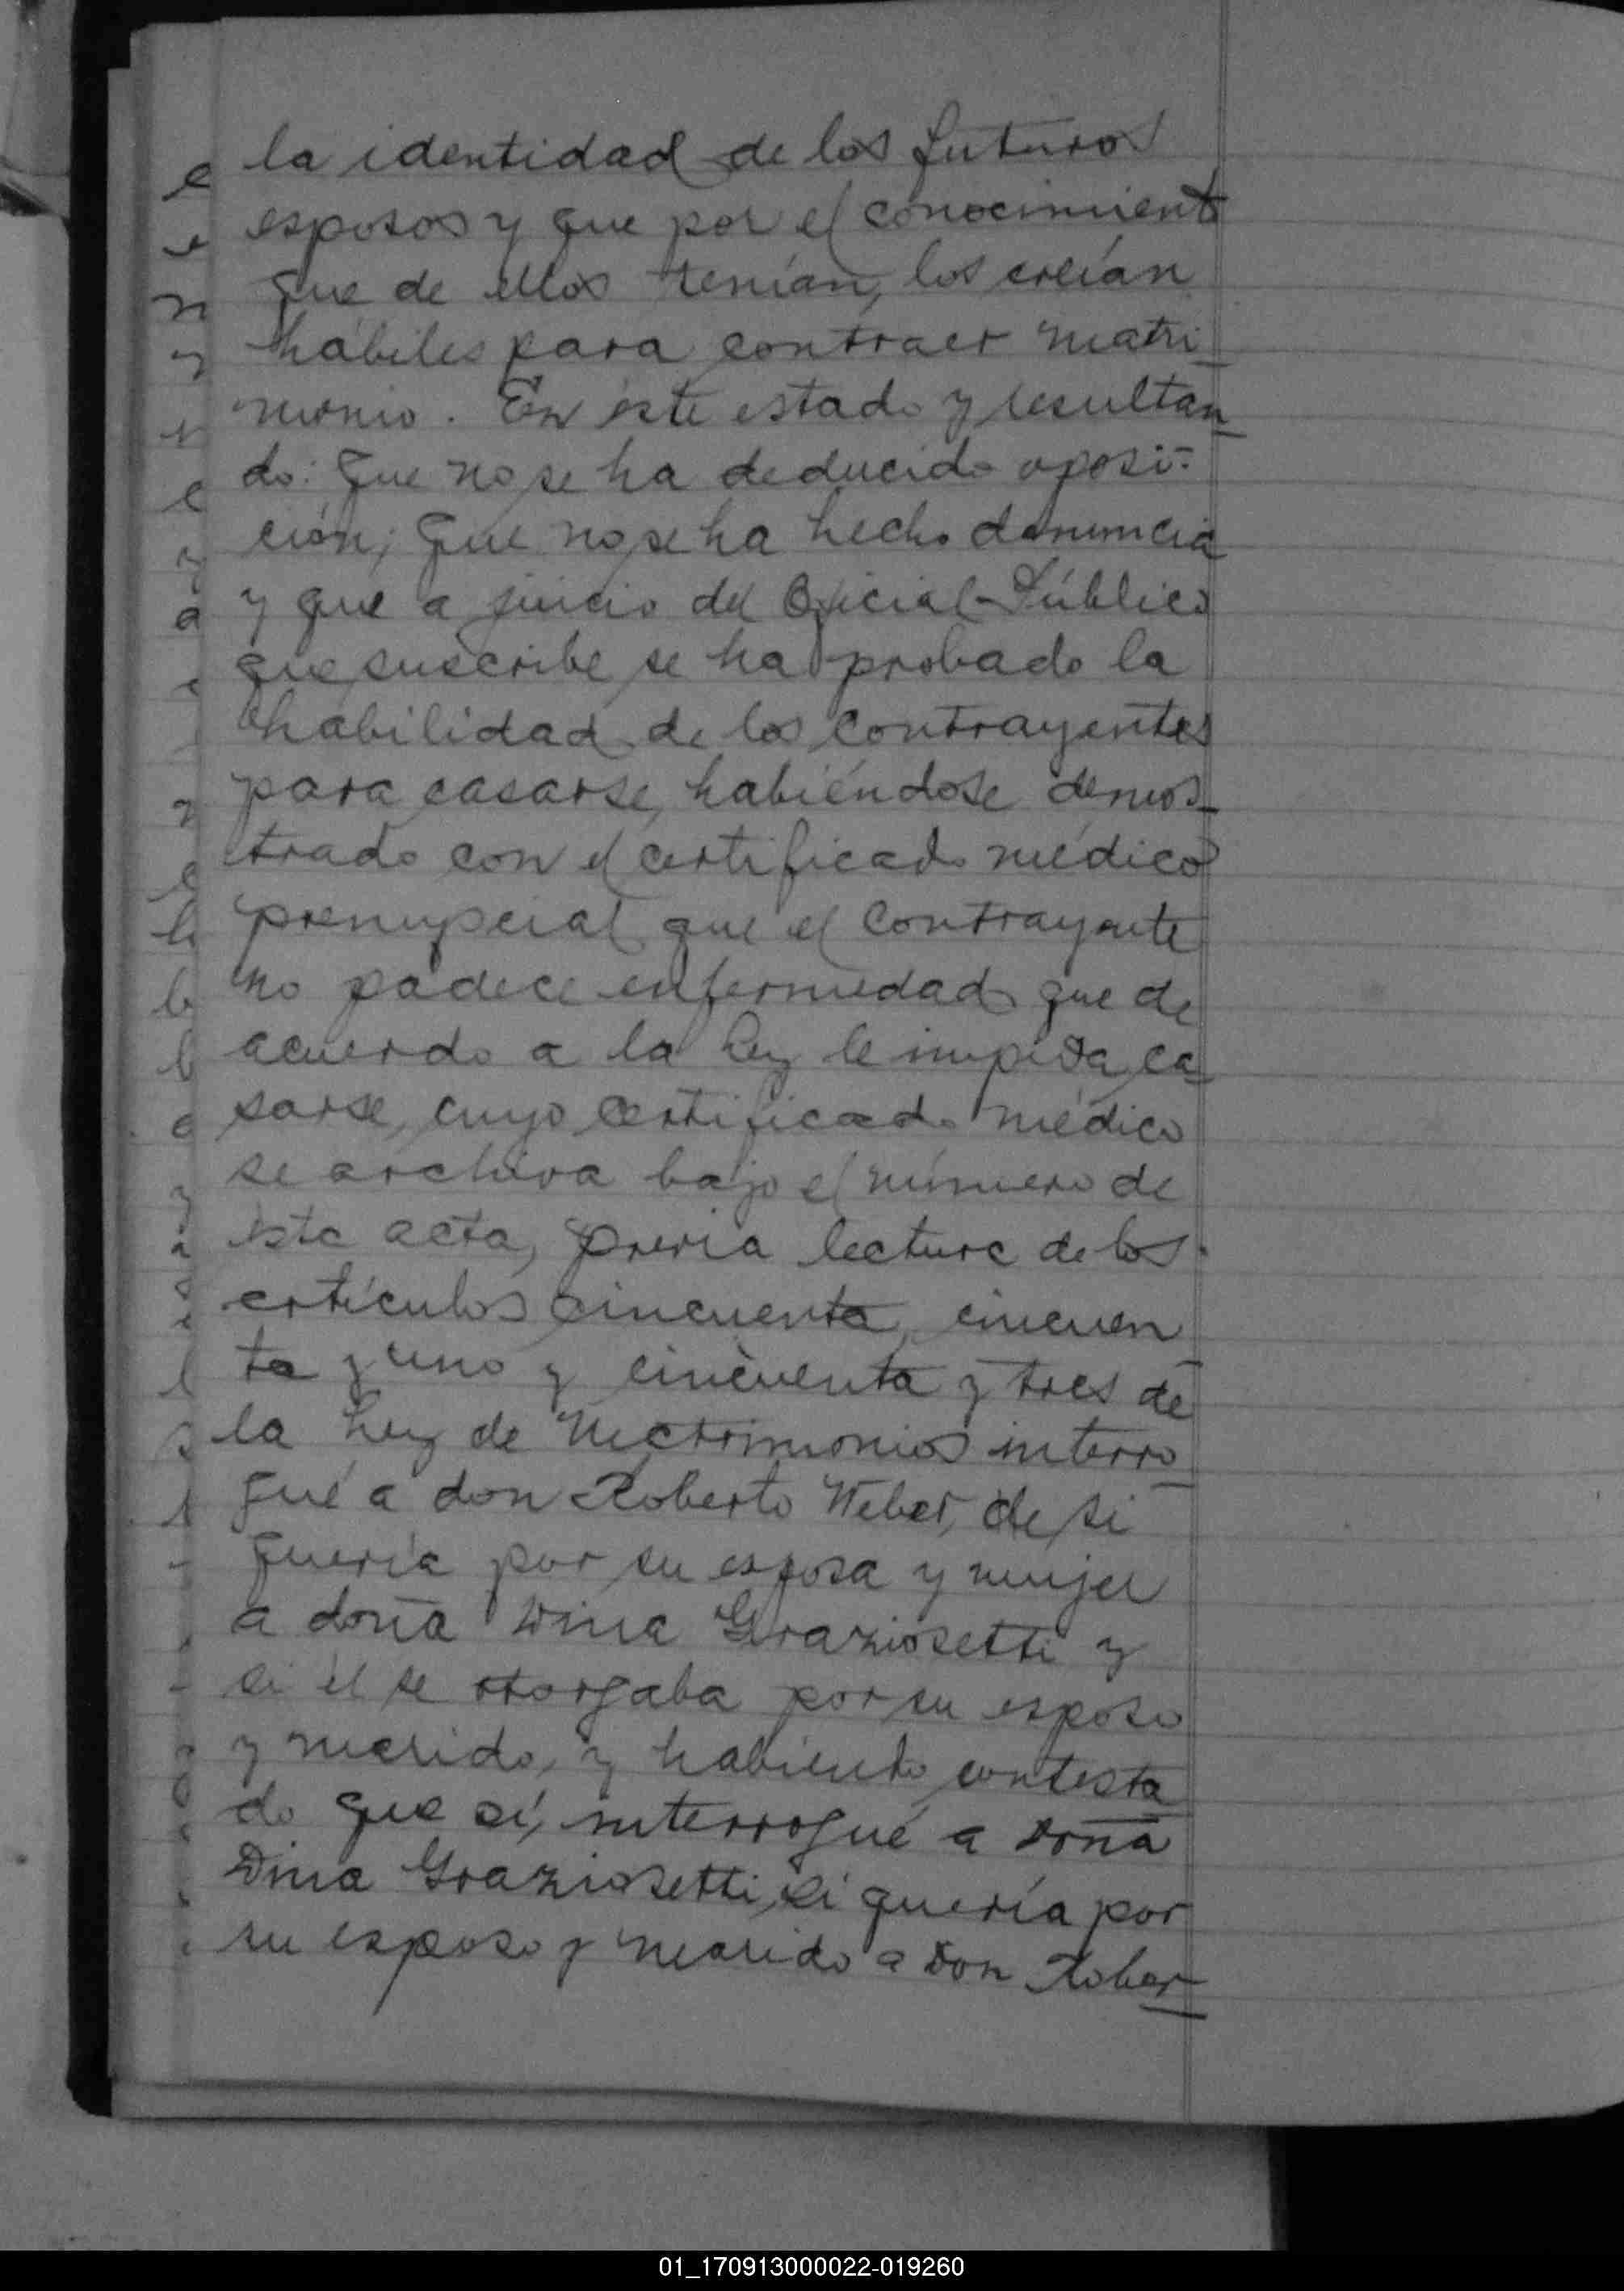 la identidad de los futuros
esposos y que por el conocimiento
que de ellos tenían, los creían
hábiles para contraer matri_
monio. En éste estado y resultan_
do: que no se ha deducido oposi-
ción; que no se ha hecho denuncia
y que a juicio del Oficial Público
que suscribe se ha probado la
habilidad de los contrayentes
para casarse, habiéndose demos_
trado con el certificado médico
prenupcial que el contrayente
no padece enfermedad que de
acuerdo a la ley le impida ca_
sarse, cuyo certificado médico
se archiva bajo el número de
ésta acta, previa lectura de los
artículos cincuenta, cincuen
ta y uno y cincuenta y tres de
la Ley de Matrimonios interro_
gué a don Roberto Weber, de si
quería por su esposa y mujer
a doña Dina Graziosetti y
si él se otorgaba por su esposo
y marido, y habiendo contesta_
do que sí, interrogué a doña
Dina Graziosetti, si quería por
su esposo y marido a don Rober_
01_170913000022-019260